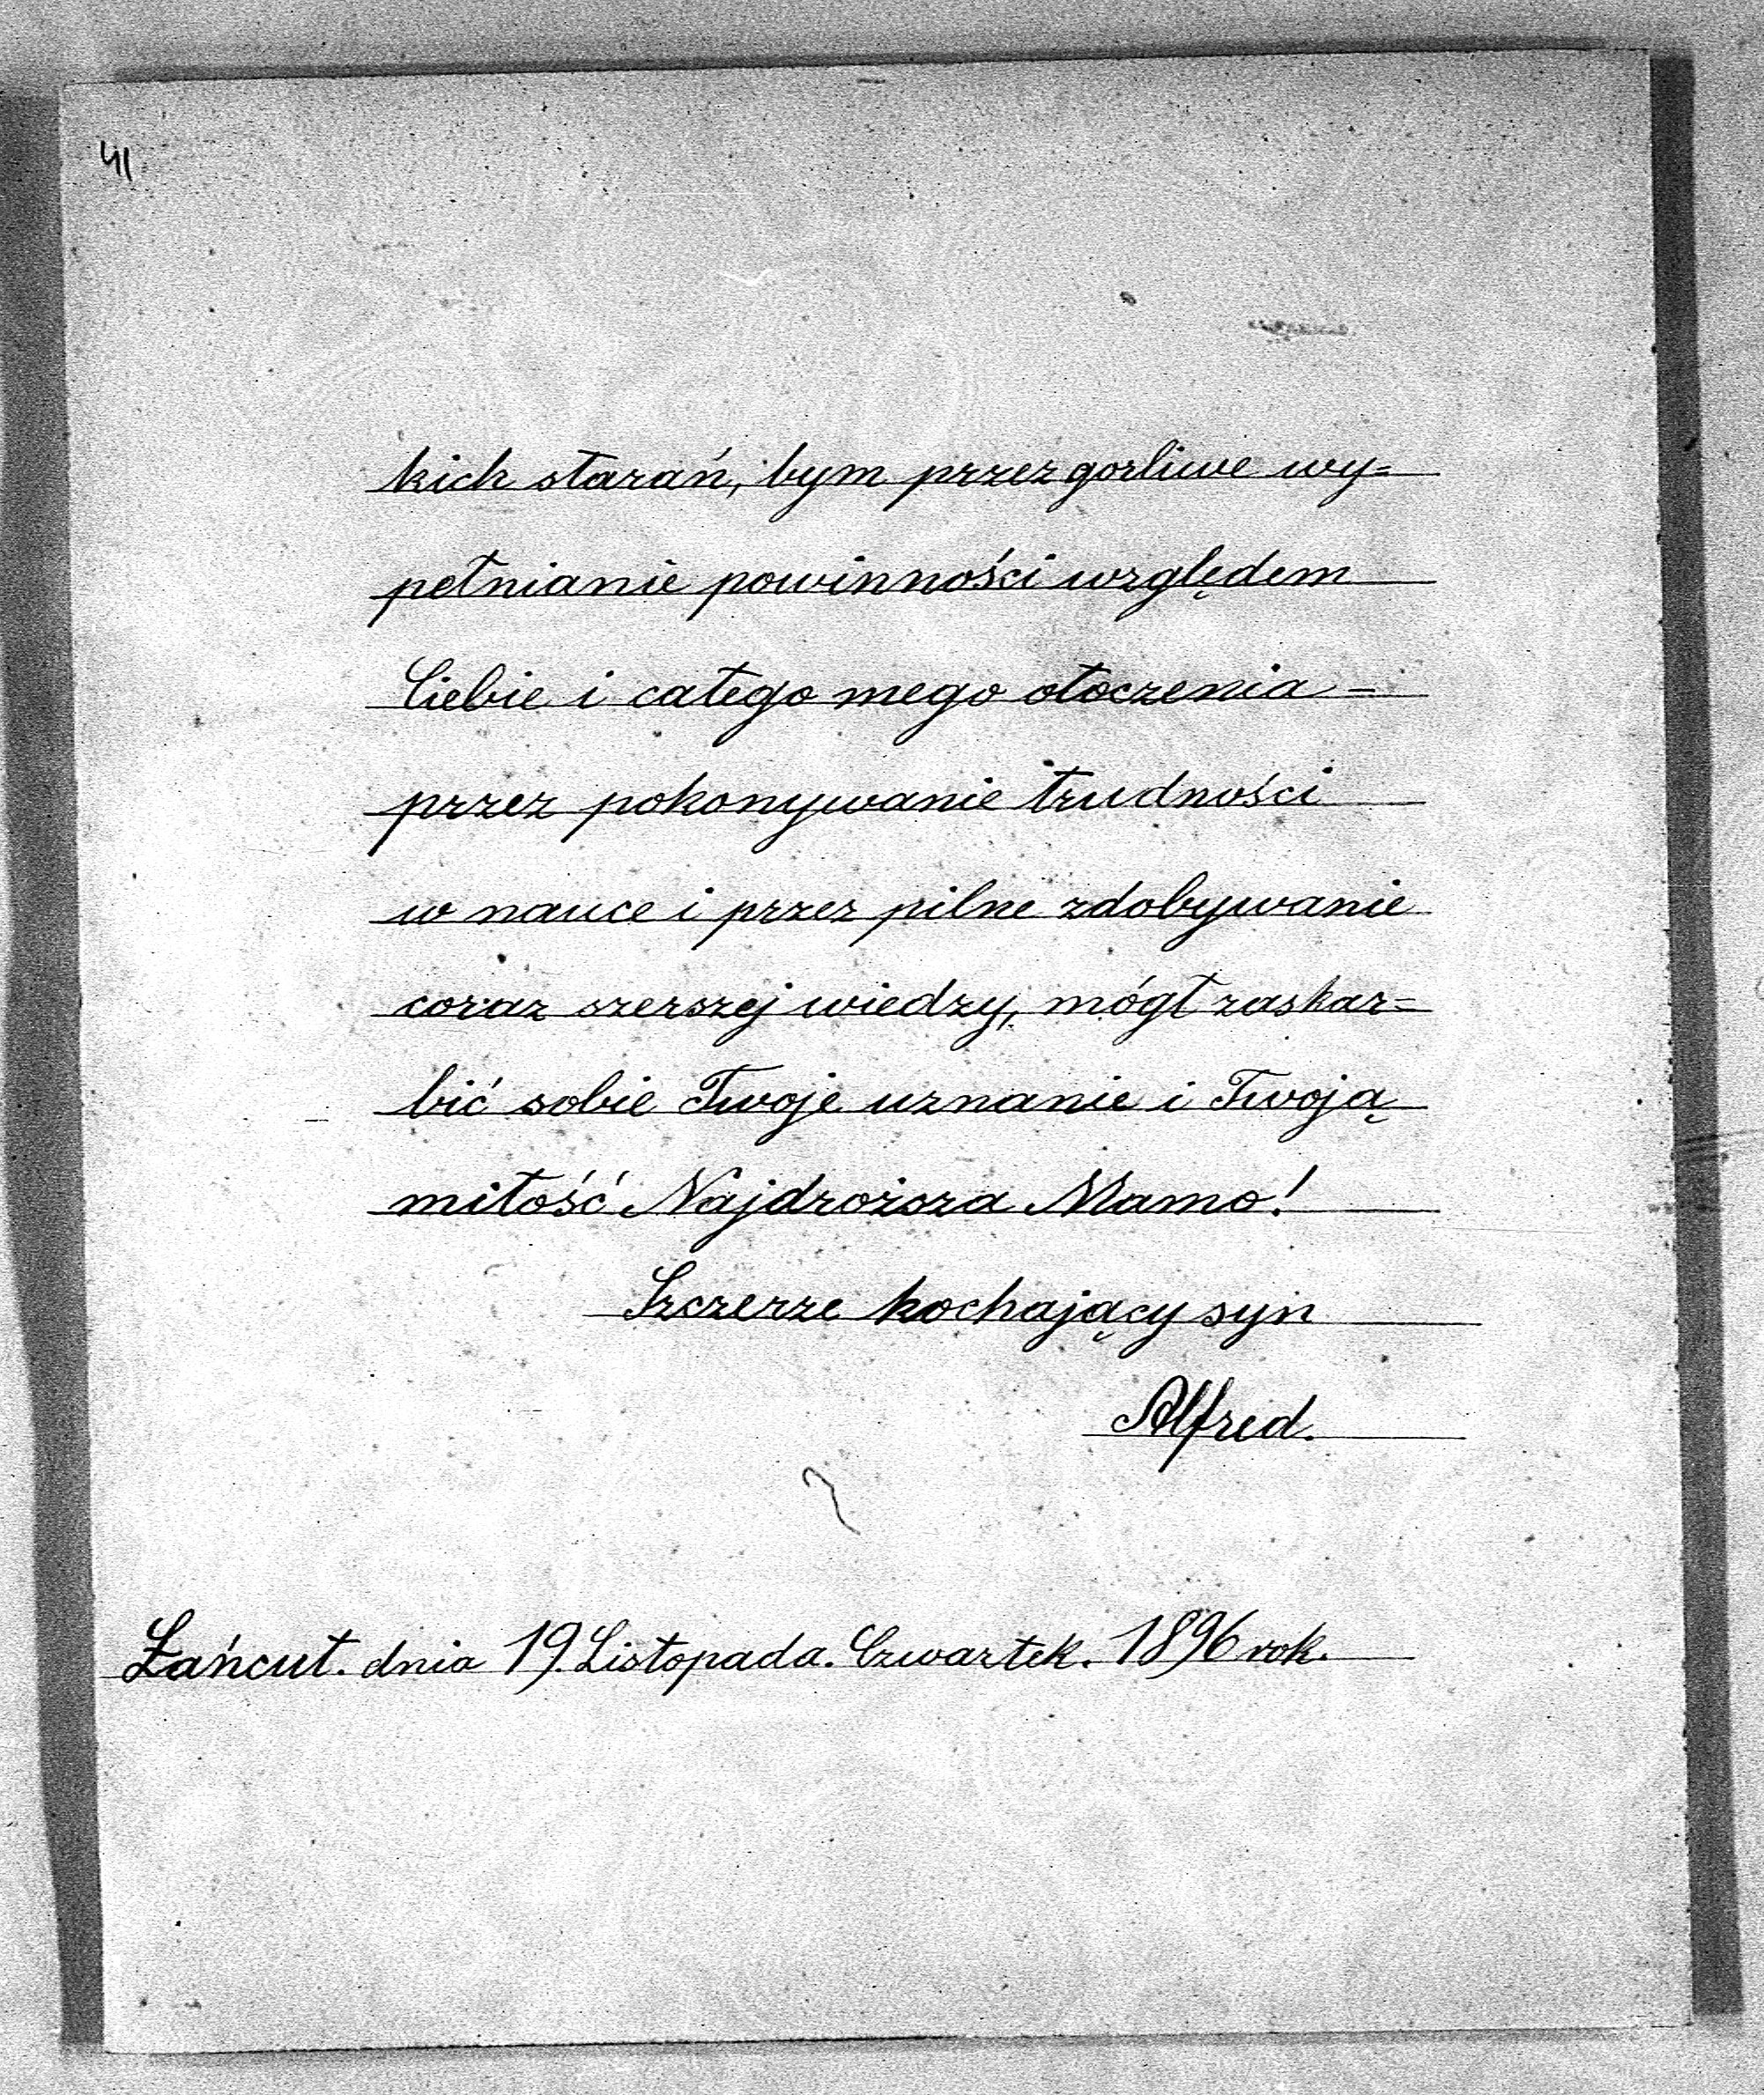 41
kich starań, bym przez gorliwe wy=
pełnianie powinności względem
Ciebie i całego mego otoczenia =
przez pokonywanie trudności
w nauce i przez pilne zdobywanie
coraz szerszej wiedzy, mógł zaskar=
bić sobie Twoje uznanie i Twoją
miłość Najdroższa Mamo!
Szczerze kochający syn
Alfred.
Łańcut. dnia 19. Listopada. Czwartek. 1896 rok.